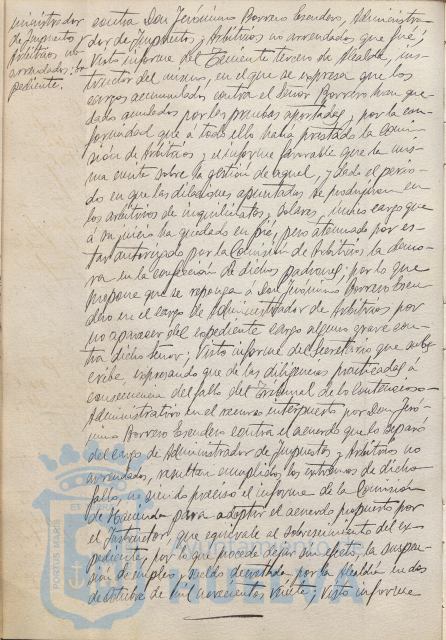 ministrador
de Impuestos y
Arbitrios no
arrendados: ex
pediente.
contra Don Jerónimo Borrero Escudero, Administra-
dor de Impuestos y Arbitrios no arrendados que fué;
Visto informe del Teniente tercero de Alcalde, ins-
tructor del mismo, en el que se expresa que los
cargos acumulados contra el Señor Borrero han que-
dado anulados por las pruebas aportadas y por la con-
formidad que á todo ello había prestado la Comi-
sión de Arbitrios, y el informe favorable que la mis-
ma emite sobre la gestión de aquel, y dado el perío-
do en que las dilaciones apuntadas se produjeron en
los arbitrios de inquilinatos, solares, único cargo que
á su juicio ha quedado en pié, pero atenuado por es-
tar autorizado por la Comisión de Arbitrios la demo-
ra en la confección de dichos padrones; por lo que
propone que se reponga á Don Jerónimo Borrero Escu-
dero en el cargo de Administrador de Arbitrios por
no aparecer del expediente cargo alguno grave con-
tra dicho señor; Visto informe del Secretario que subs-
cribe, expresando que de las diligencias practicadas á
consecuencia del fallo del Tribunal de lo Contencioso
Administrativo en el recurso interpuesto por Don Jeró-
nimo Borrero Escudero contra el acuerdo que lo separó
del cargo de Administrador de Impuestos y Arbitrios no
arrendados, resultan cumplidos los extremos de dicho
fallo, no siendo preciso el informe de la Comisión
de Hacienda para adoptar el acuerdo propuesto por
el Instructor, que equivale al sobreseimiento del ex-
pediente, por lo que procede dejar sin efecto la suspen-
sión de empleo y sueldo decretada por la Alcaldía en dos
de Octubre de mil novecientos veinte; Visto informe
PORTUS MARIS
HUELVA